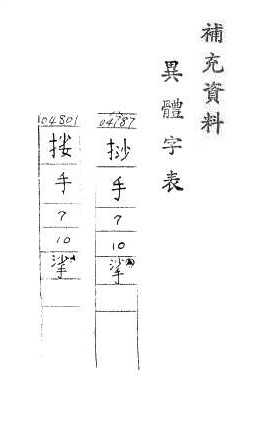 補充資料
異體字表
04787
挱
手
7
10
挲
04801
挼
手
7
10
挲